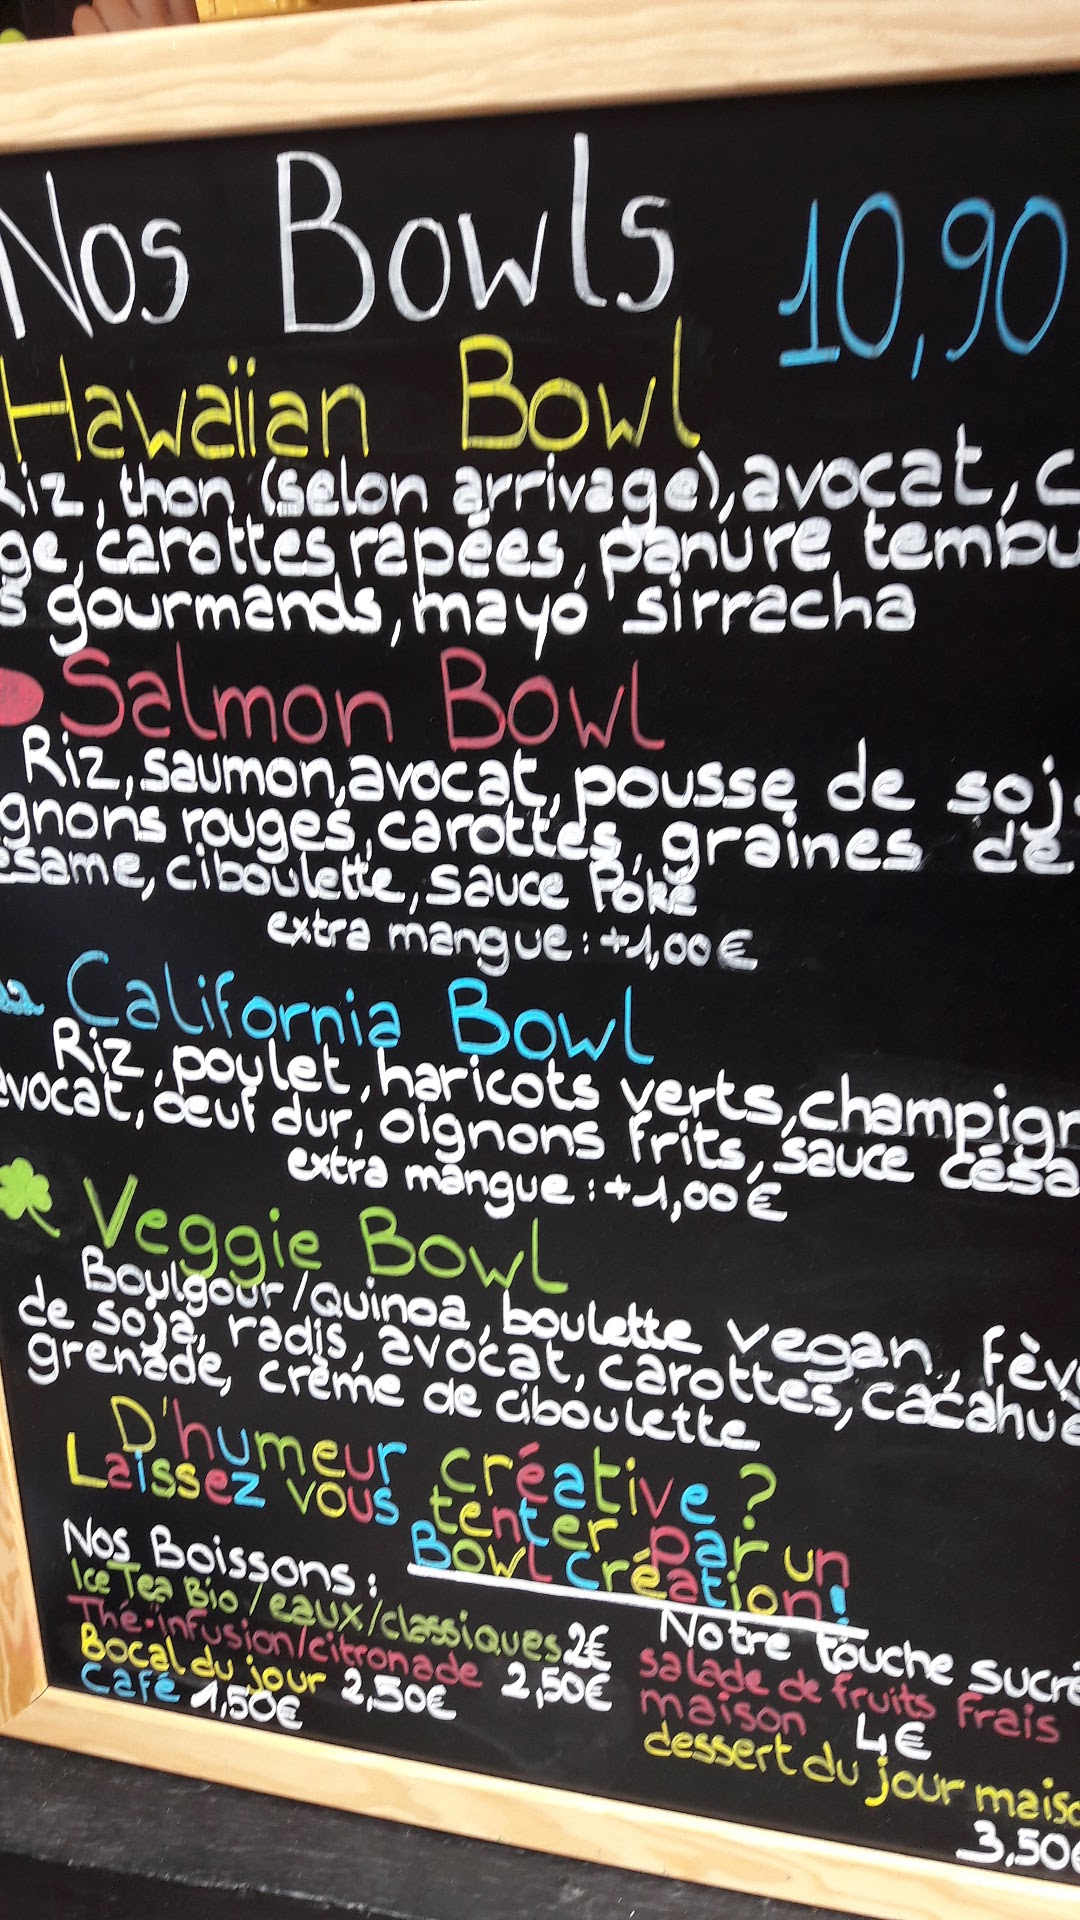 Nos Bowls 10,90
Hawaiian Bowl
Riz, thon (selon arrivage), avocat, c
ge, carottes rapées, panure tembu
s gourmands, mayo sirracha
Salmon Bowl
Riz, saumon, avocat, pousse de soj
gnons rouges, carottes, graines de
esame, ciboulette, sauce Poké
extra mangue : +1,00€
California Bowl
Riz, poulet, haricots verts, champign
avocat, oeuf dur, oignons frits, sauce césa
extra mangue : +1,00€
Veggie Bowl
Boulgour/Quinoa, boulette vegan, fèv
de soja, radis, avocat, carottes, cacahuè
grenade, crème de ciboulette
D'humeur créative ?
Laissez vous tenter par un
Bowl création!
Nos Boissons :
Ice Tea Bio / eaux/classiques 2€
Thé-infusion/citronade 2,50€
Bocal du jour 2,50€
Café 1,50€
Notre touche sucré
salade de fruits frais
maison 4€
dessert du jour maiso
3,50€